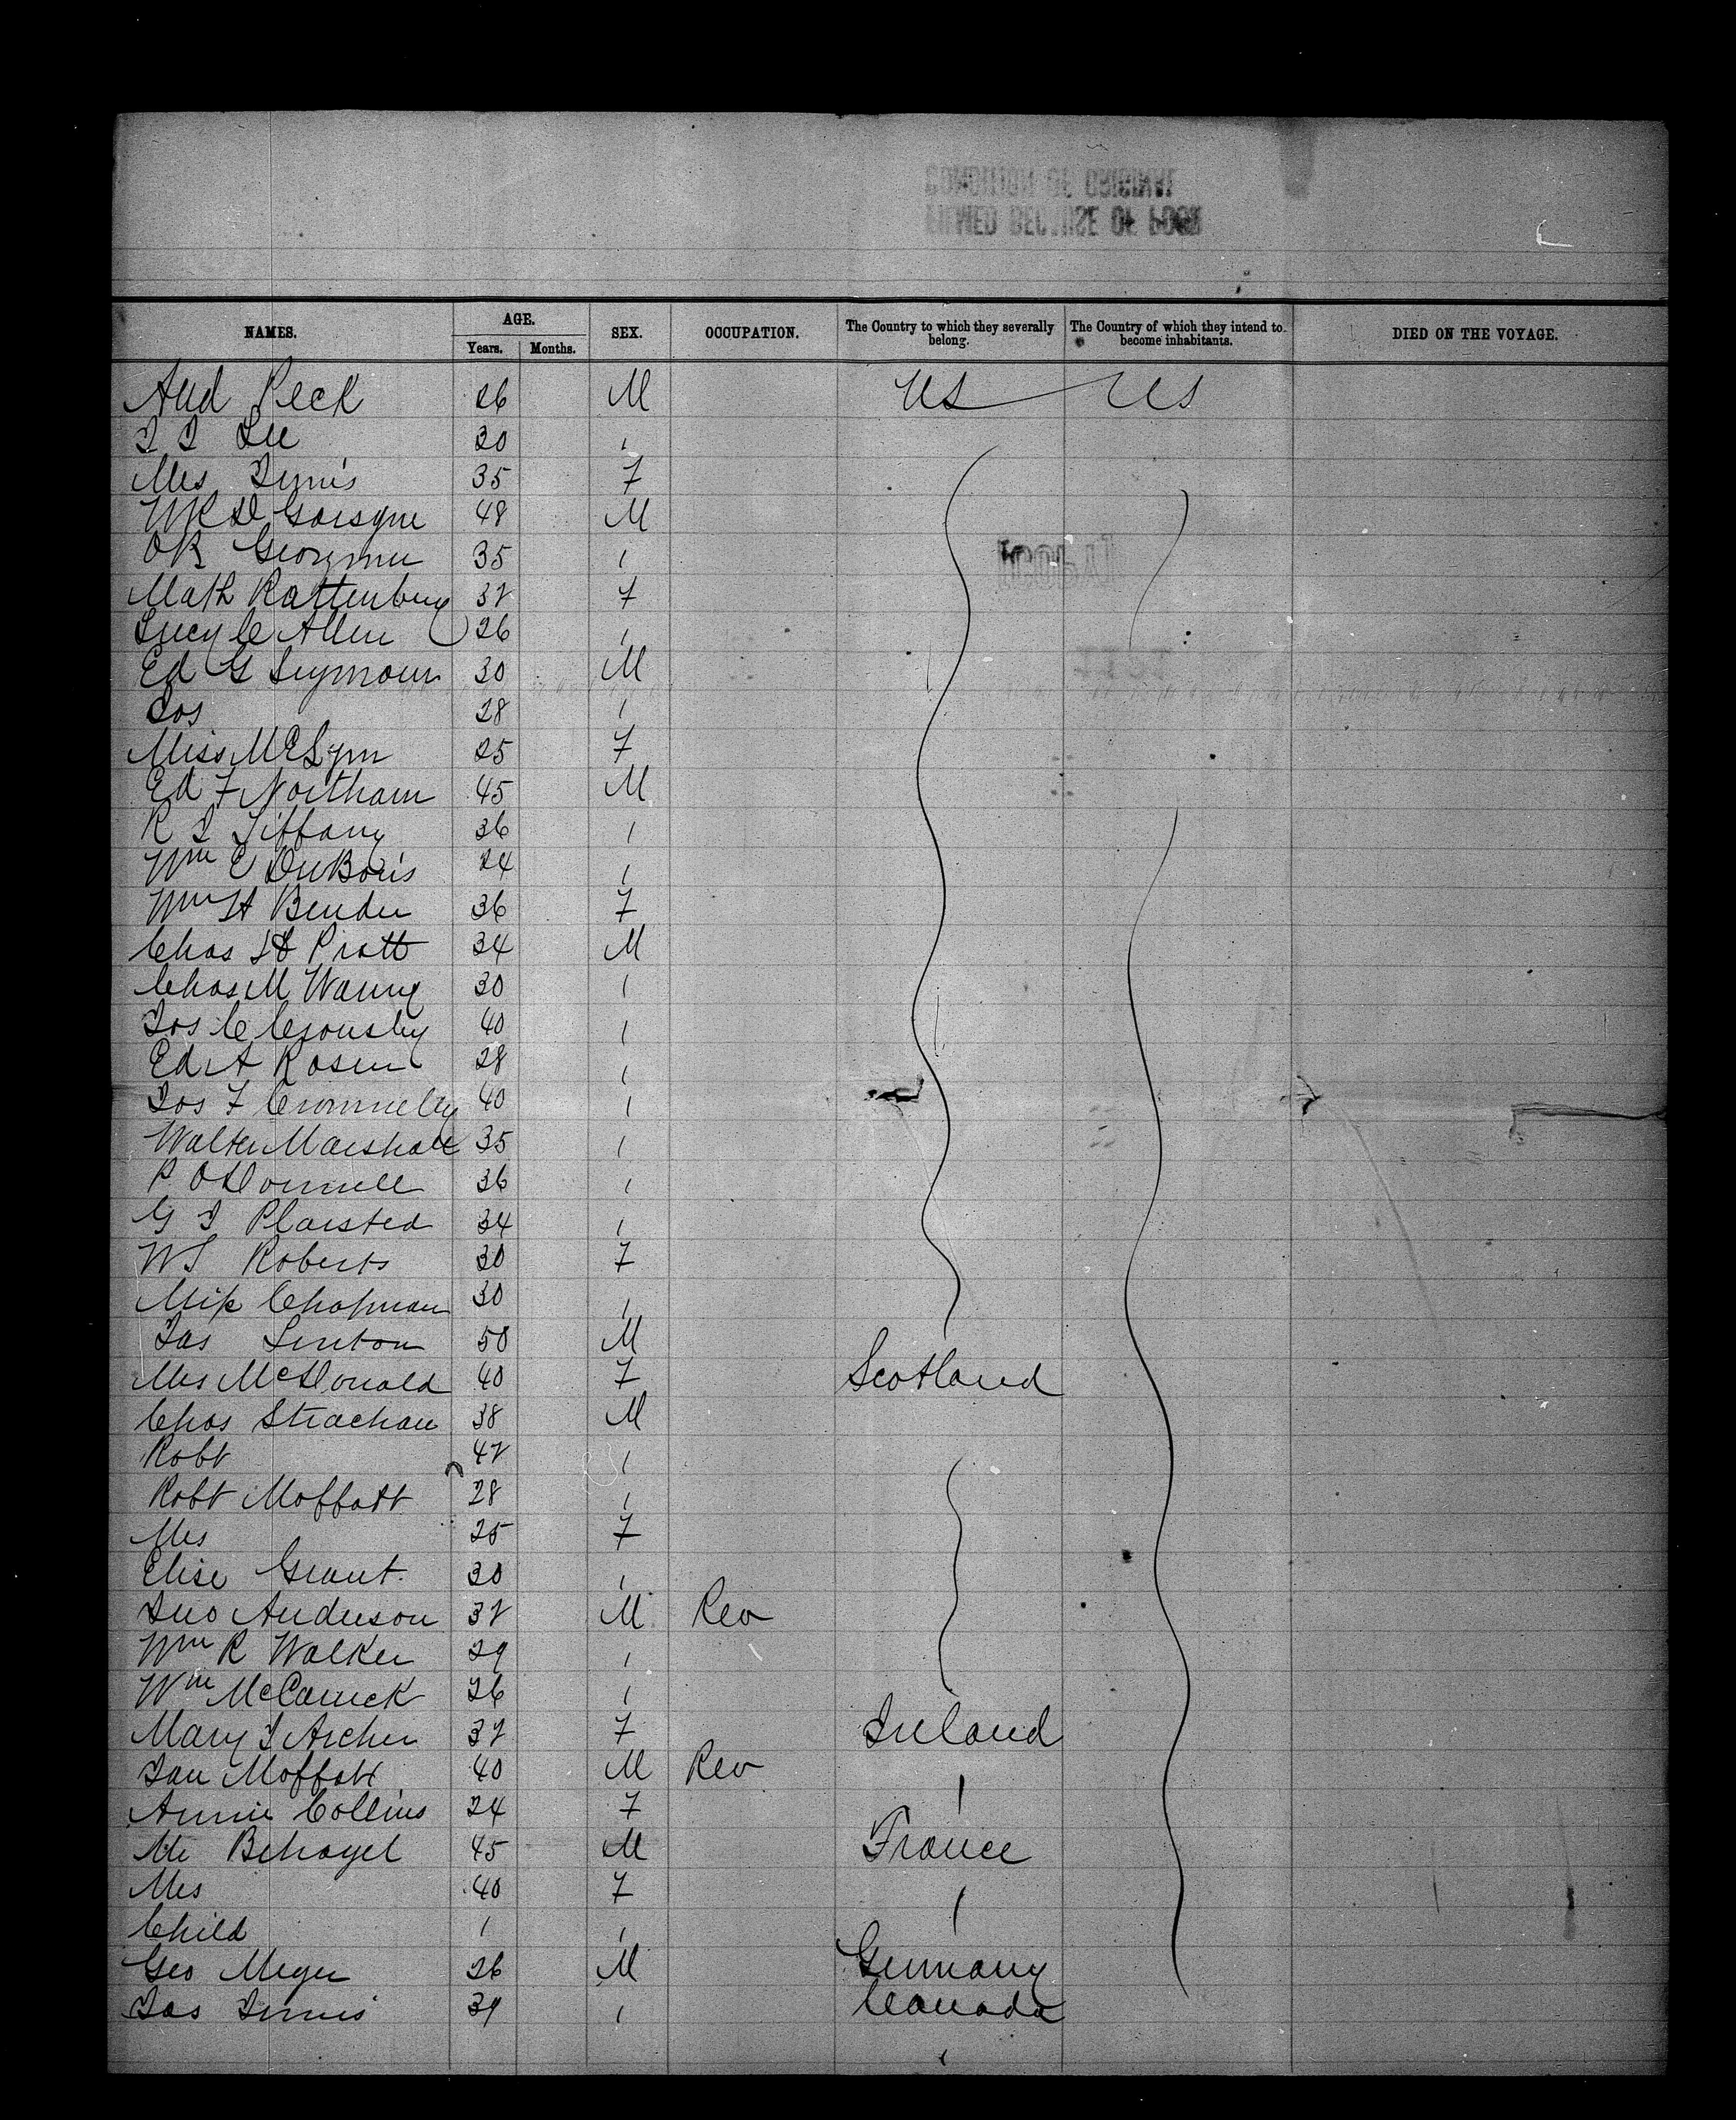 NAMES. AGE. Years. Months. SEX. OCCUPATION. The Country to which they severally belong. The Country of which they intend to become inhabitants. DIED ON THE VOYAGE.
And Peck 26 M US US
J J Lee 30 "
Mrs Innis 35 F
48 M
O R 35 "
Math Rattenbury 32 F
Lucy C Allen 26 "
Ed G Seymour 30 M
Jos 28 "
Miss McLynn 25 F
Ed F Northam 45 M
R J Tiffany 36 "
Wm E DuBois 24 "
Wm H Bender 36 F
Chas H Pratt 34 M
Chas M 30 "
Jos C 40 "
Ed A Rosen 28 "
Jos F 40 "
Walter Marshall 35 "
P O'Donnell 36 "
G J Plaisted 34 "
W S Roberts 30 F
Miss Chapman 30 "
Jas Linton 50 M
Mrs McDonald 40 F Scotland
Chas Strachan 38 M
Robt 42 "
Robt Moffatt 28 "
Mrs 25 F
Elise Grant. 30 "
Jno Anderson 32 M Rev
Wm R Walker 29 "
Wm 26 "
Mary J Archer 32 F Ireland
Moffatt 40 M Rev "
Annie Collins 24 F
Behagel 45 M France
Mrs 40 F "
Child 1 "
Geo Meyer 26 M Germany
Jas Innis 39 " Canada